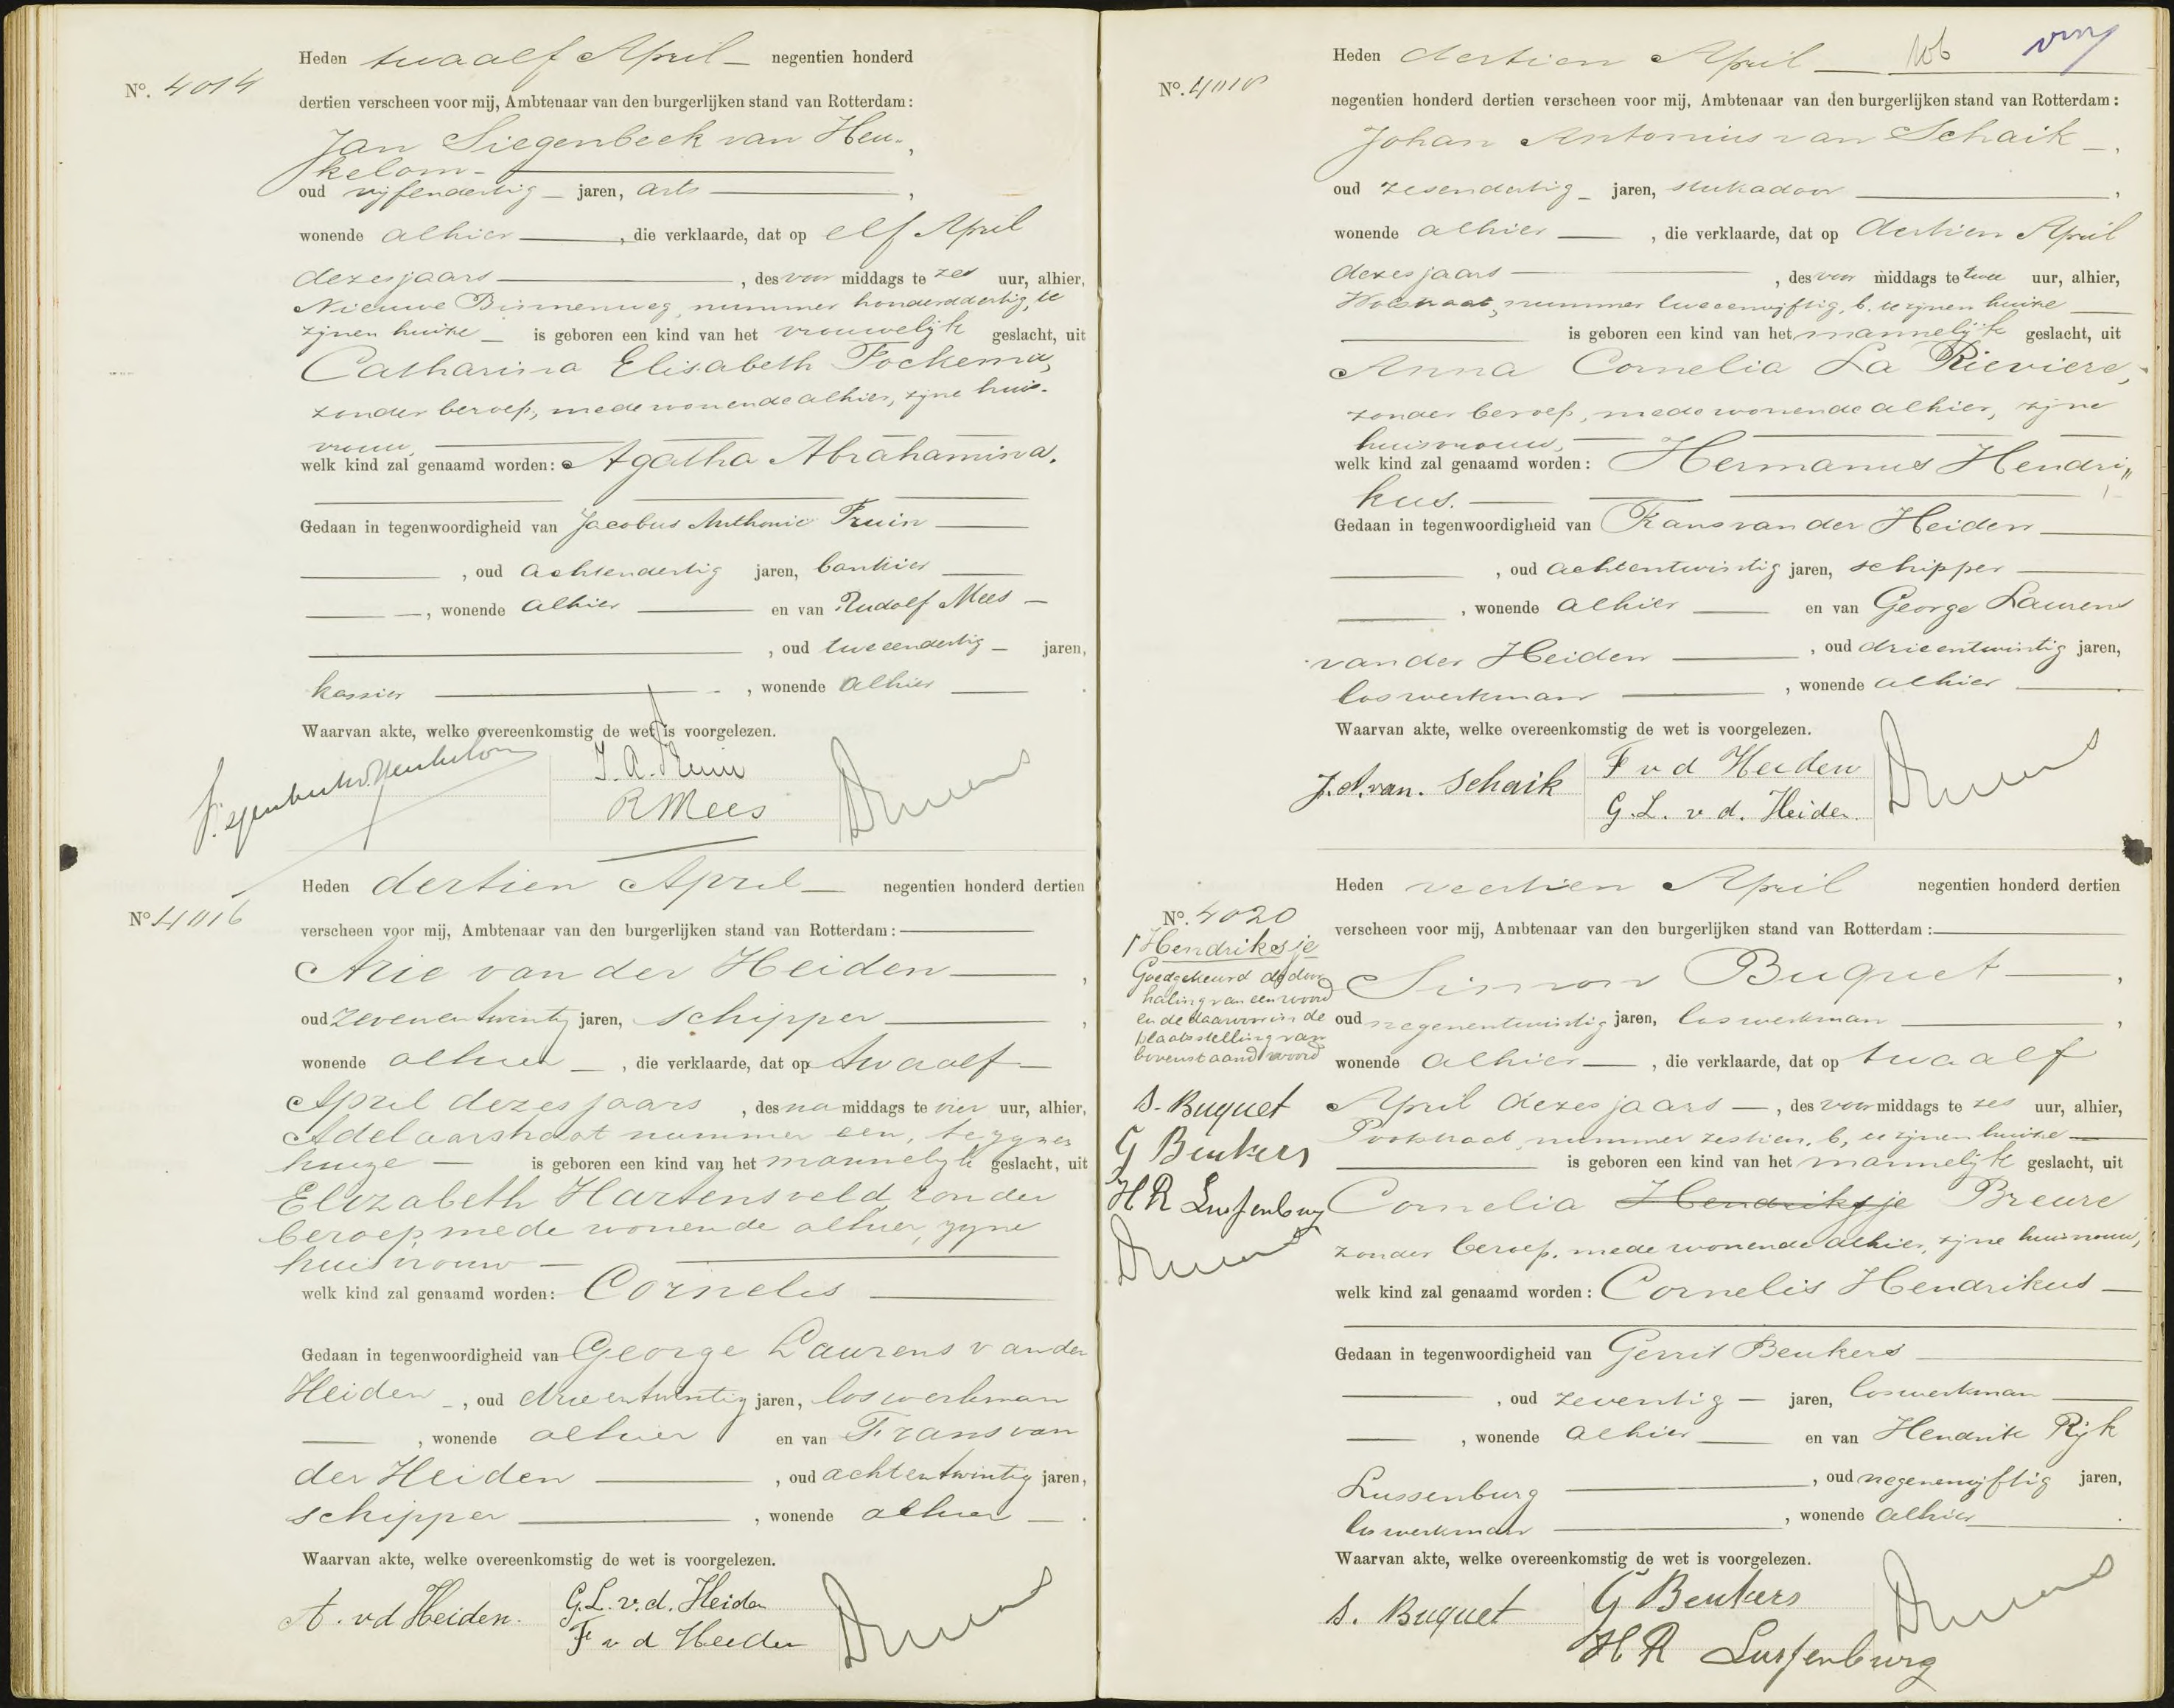 Heden twaalf April — negentien honderd
No. 4014
dertien verscheen voor mij, Ambtenaar van den burgerlijken stand van Rotterdam:
Jan Siegenbeek van Heu-,
kelom
oud vijfendertig — jaren, arts ,
wonende alhier , die verklaarde, dat op elf April
dezes jaars , des voor middags te zes uur, alhier,
Nieuwe Binnenweg, nummer honderddertig, te
zijnen huize — is geboren een kind van het vrouwelijk geslacht, uit
Catharina Elisabeth Fockema,
zonder beroep, mede wonende alhier, zijne huis-
vrouw,
welk kind zal genaamd worden: Agatha Abrahamina.
Gedaan in tegenwoordigheid van Jacobus Anthonie Fruin
, oud achtendertig jaren, bankier
, wonende alhier en van Rudolf Mees —
, oud tweeendertig — jaren,
kassier , wonende alhier .
Waarvan akte, welke overeenkomstig de wet is voorgelezen.
J. A. Fruin
R Mees
Heden dertien April — negentien honderd dertien
No. 4016
verscheen voor mij, Ambtenaar van den burgerlijken stand van Rotterdam:
Arie van der Heiden ,
oud zevenentwintig jaren, schipper ,
wonende alhier — , die verklaarde, dat op twaalf
April dezes jaars , des na middags te vier uur, alhier,
Adelaarstraat nummer een, te zynen
huize — is geboren een kind van het mannelyk geslacht, uit
Elizabeth Hartensveld zonder
beroep mede wonende alhier, zyne
huisvrouw —
welk kind zal genaamd worden: Cornelis
Gedaan in tegenwoordigheid van George Laurens van der
Heiden , oud drieentwintig jaren, loswerkman
, wonende alhier en van Frans van
der Heiden , oud achtentwintig jaren,
schipper , wonende alhier — .
Waarvan akte, welke overeenkomstig de wet is voorgelezen.
A. vd Heiden. G. L. v. d. Heiden
F v d Heiden
Heden dertien April
No. 4018
negentien honderd dertien verscheen voor mij, Ambtenaar van den burgerlijken stand van Rotterdam:
Johan Antonius van Schaik —,
oud zesendertig — jaren, stukadoor ,
wonende alhier , die verklaarde, dat op dertien April
dezes jaars , des voor middags te twee uur, alhier,
nummer tweeenvijftig, b. te zijnen huize
is geboren een kind van het mannelijk geslacht, uit
Anna Cornelia La Rieviere,
zonder beroep, mede wonende alhier, zijne
huisvrouw,
welk kind zal genaamd worden: Hermanus Hendri„
kus.
Gedaan in tegenwoordigheid van Frans van der Heiden
, oud achtentwintig jaren, schipper
, wonende alhier en van George Laurens
van der Heiden , oud drieentwintig jaren,
loswerkman , wonende alhier .
Waarvan akte, welke overeenkomstig de wet is voorgelezen.
J. A. van. Schaik F v d Heiden
G. L. v. d. Heiden.
Heden veertien April negentien honderd dertien
No. 4020
verscheen voor mij, Ambtenaar van den burgerlijken stand van Rotterdam:
Simon Buquet ,
oud negenentwintig jaren, loswerkman ,
wonende alhier — , die verklaarde, dat op twaalf
April dezes jaars — , des voor middags te zes uur, alhier,
nummer zestien, b, te zijnen huize
is geboren een kind van het mannelijk geslacht, uit
Cornelia Hendriksje Breure
zonder beroep, mede wonende alhier, zijne huisvrouw,
welk kind zal genaamd worden: Cornelis Hendrikus —
Gedaan in tegenwoordigheid van Gerrit Beukers
, oud zeventig — jaren, loswerkman
, wonende alhier en van Hendrik Rijk
Lussenburg , oud negenenvijftig jaren,
loswerkman , wonende alhier .
Waarvan akte, welke overeenkomstig de wet is voorgelezen.
S. Buquet G Beukers
H R Lussenburg
Hendriksje
Goedgekeurd de door
haling van een woord
en de daarvoor in de
plaatsstelling van
bovenstaand woord
S. Buquet
G Beukers
H R Lussenburg